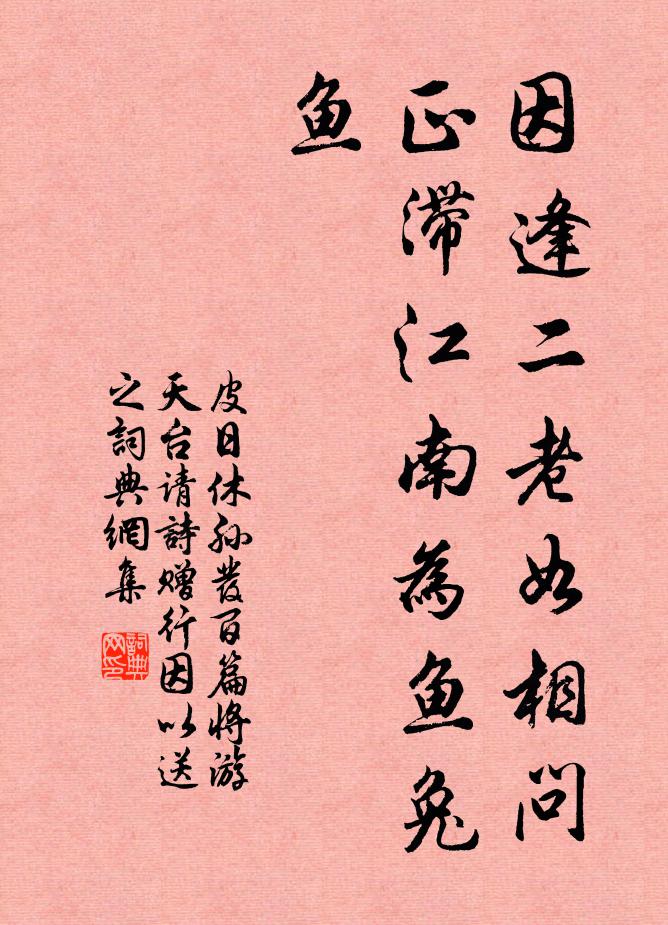 因逢二老如相问
正滞江南為鱼兔
鱼
皮日休孙發百篇将游
天台请詩赠行因以送
之詞典網集
詞典
网印